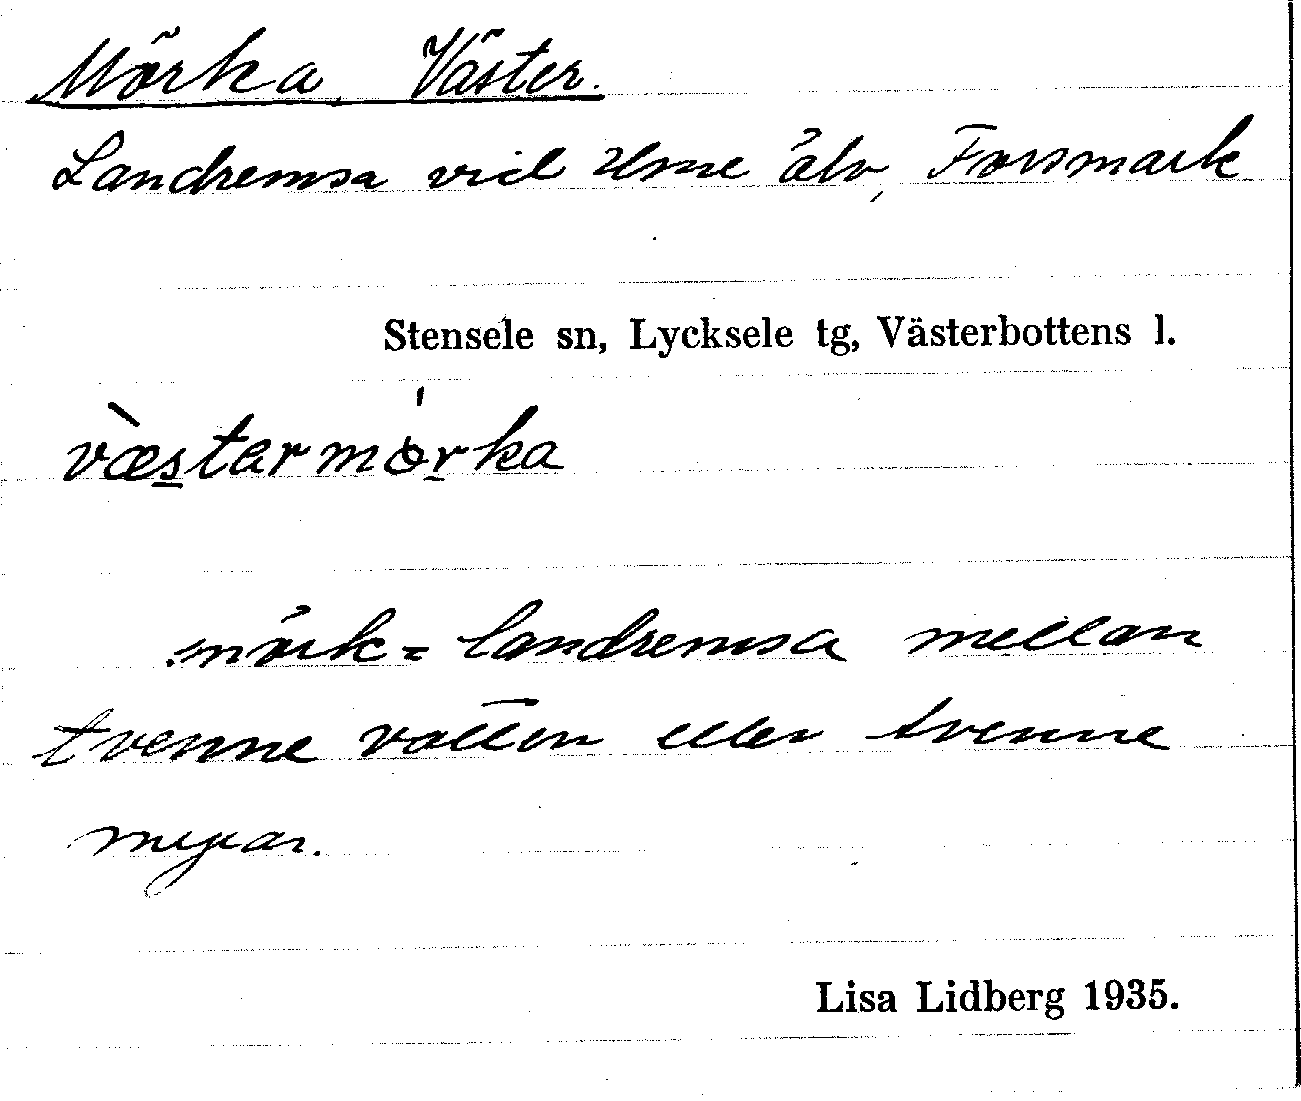 Mörka, Väster.
Landremsa vid Ume älv, Forsmark
Stensele sn, Lycksele tg, Västerbottens l.
væstermörka
mörk = landremsa mellan
tvenne vatten eller tvenne
myrar.
Lisa Lidberg 1935.